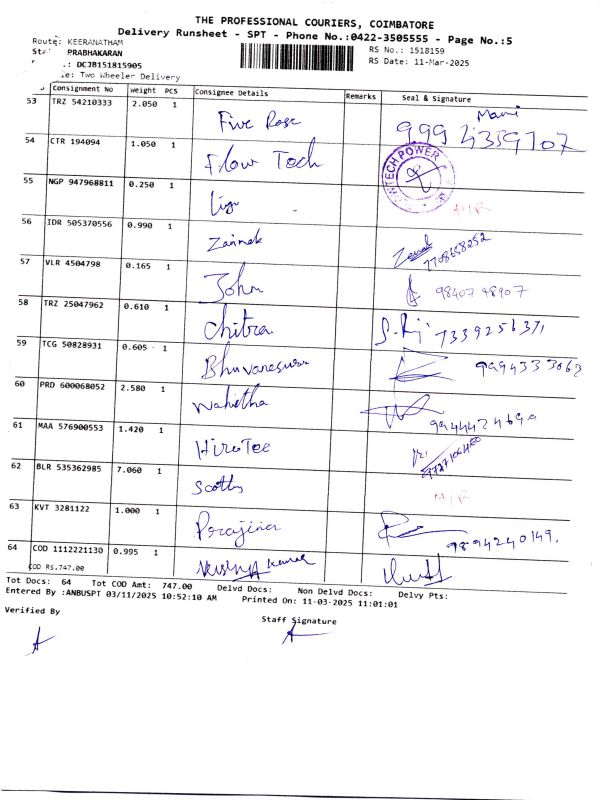 THE PROFESSIONAL COURIERS, COIMBATORE
Delivery Runsheet - SPT - Phone No.:0422-3505555 - Page No.:5
Route: KEERANATHAM
RS No.: 1518159
PRABHAKARAN
RS Date: 11-Mar-2025
.: DCJB151815905
e: Two Wheeler Delivery
Consignment No Weight PCS Consignee Details Remarks Seal & Signature
53 TRZ 54210333 2.050 1 Five Rose Mani
54 CTR 194094 1.050 1 Flow Tech TECH POWER
55 NGP 947968811 0.250 1 N/R
56 IDR 505370556 0.990 1 7708658252
57 VLR 4504798 0.165 1 John 98407 48907
58 TRZ 25047962 0.610 1 Chitra
59 TCG 50828931 0.605 1 Bhuvaneswari 9994333063
60 PRD 600068052 2.580 1
61 MAA 576900553 1.420 1 HiroTec
62 BLR 535362985 7.060 1 N/R
63 KVT 3281122 1.000 1 98-94240149.
64 COD 1112221130 0.995 1 Krishna Kumar
COD RS.747.00
Tot Docs: 64 Tot COD Amt: 747.00 Delvd Docs: Non Delvd Docs: Delvy Pts:
Entered By :ANBUSPT 03/11/2025 10:52:10 AM Printed On: 11-03-2025 11:01:01
Verified By
Staff Signature